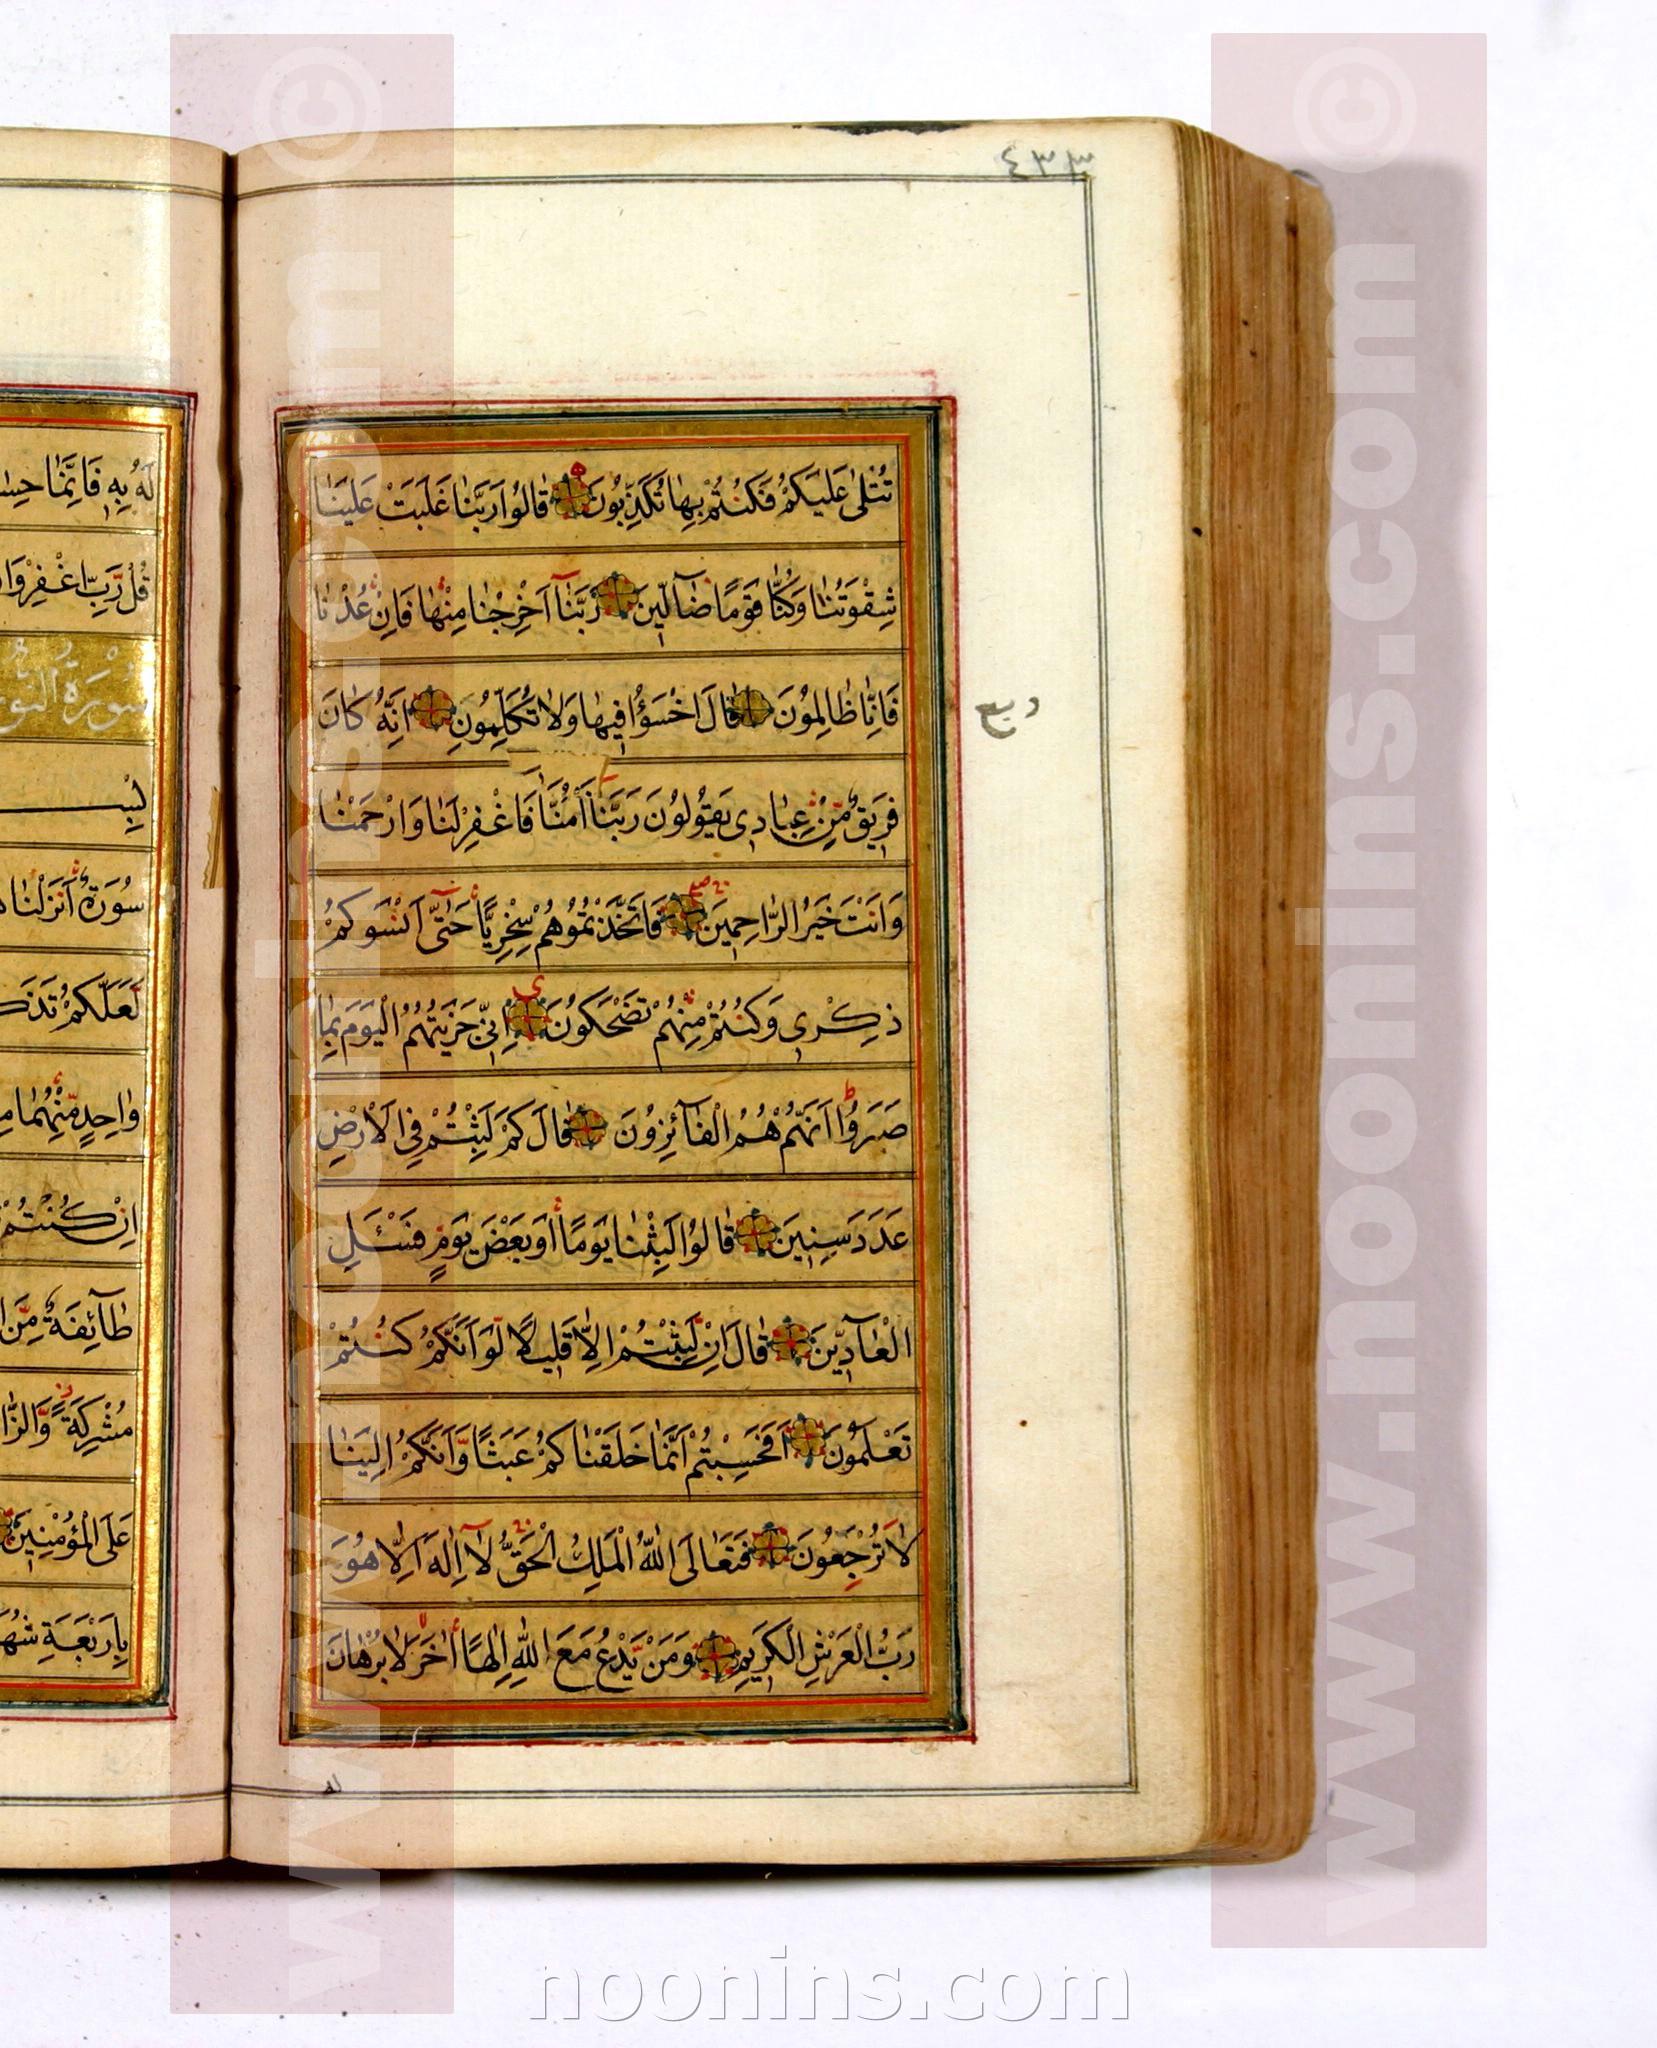 ٤٣٣
تُتْلىٰ عَلَيْكُمْ فَكُنْتُمْ بِهٰا تُكَذِّبُونَ قٰالُوا رَبَّنٰا غَلَبَتْ عَلَيْنٰا
شِقْوَتُنٰا وَكُنّٰا قَوْمًا ضٰآلّينَ رَبَّنٰآ اَخْرِجْنٰا مِنْهٰا فَاِنْ عُدْنٰا
فَاِنّٰا ظٰالِمُونَ قٰالَ اخْسَؤُا فيهٰا وَلٰا تُكَلِّمُونِ اِنَّهُ كٰانَ
ربع
فَريقٌ مِنْ عِبٰادي يَقُولُونَ رَبَّنٰا اٰمَنّٰا فَاغْفِرْ لَنٰا وَارْحَمْنٰا
وَاَنْتَ خَيْرُ الرّٰاحِمينَ فَاتَّخَذْتُمُوهُمْ سِخْرِيًّا حَتّٰىٓ اَنْسَوْكُمْ
ذِكْري وَكُنْتُمْ مِنْهُمْ تَضْحَكُونَ اِنّي جَزَيْتُهُمُ الْيَوْمَ بِمٰا
صَبَرُوٓا اَنَّهُمْ هُمُ الْفٰآئِزُونَ قٰالَ كَمْ لَبِثْتُمْ فِي الْاَرْضِ
عَدَدَ سِنينَ قٰالُوا لَبِثْنٰا يَوْمًا اَوْ بَعْضَ يَوْمٍ فَسْئَلِ
الْعٰآدّينَ قٰالَ اِنْ لَبِثْتُمْ اِلّٰا قَليلًا لَوْ اَنَّكُمْ كُنْتُمْ
تَعْلَمُونَ اَفَحَسِبْتُمْ اَنَّمٰا خَلَقْنٰاكُمْ عَبَثًا وَاَنَّكُمْ اِلَيْنٰا
لٰا تُرْجَعُونَ فَتَعٰالَى اللّٰهُ الْمَلِكُ الْحَقُّ لٰآ اِلٰهَ اِلّٰا هُوَ
رَبُّ الْعَرْشِ الْكَريمِ وَمَنْ يَدْعُ مَعَ اللّٰهِ اِلٰهًا اٰخَرَ لٰا بُرْهٰانَ
له
لَهُ بِهِ فَاِنَّمٰا
قُلْ رَبِّ اغْفِرْ
سُورَةُ النور
بِسْ
سُورَةٌ اَنْزَلْنٰا
لَعَلَّكُمْ
وٰاحِدٍ مِنْهُمٰا
اِنْ كُنْتُمْ
طٰآئِفَةٌ مِنَ
مُشْرِكَةً
عَلَى الْمُؤْمِنينَ
بِاَرْبَعَةِ
www.noonins.com ©
www.noonins.com ©
noonins.com